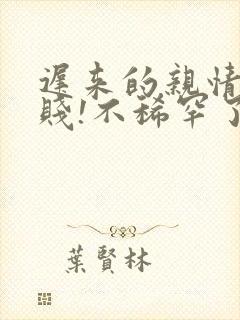 遲来的親情
賤!不稀罕了
葉賢林